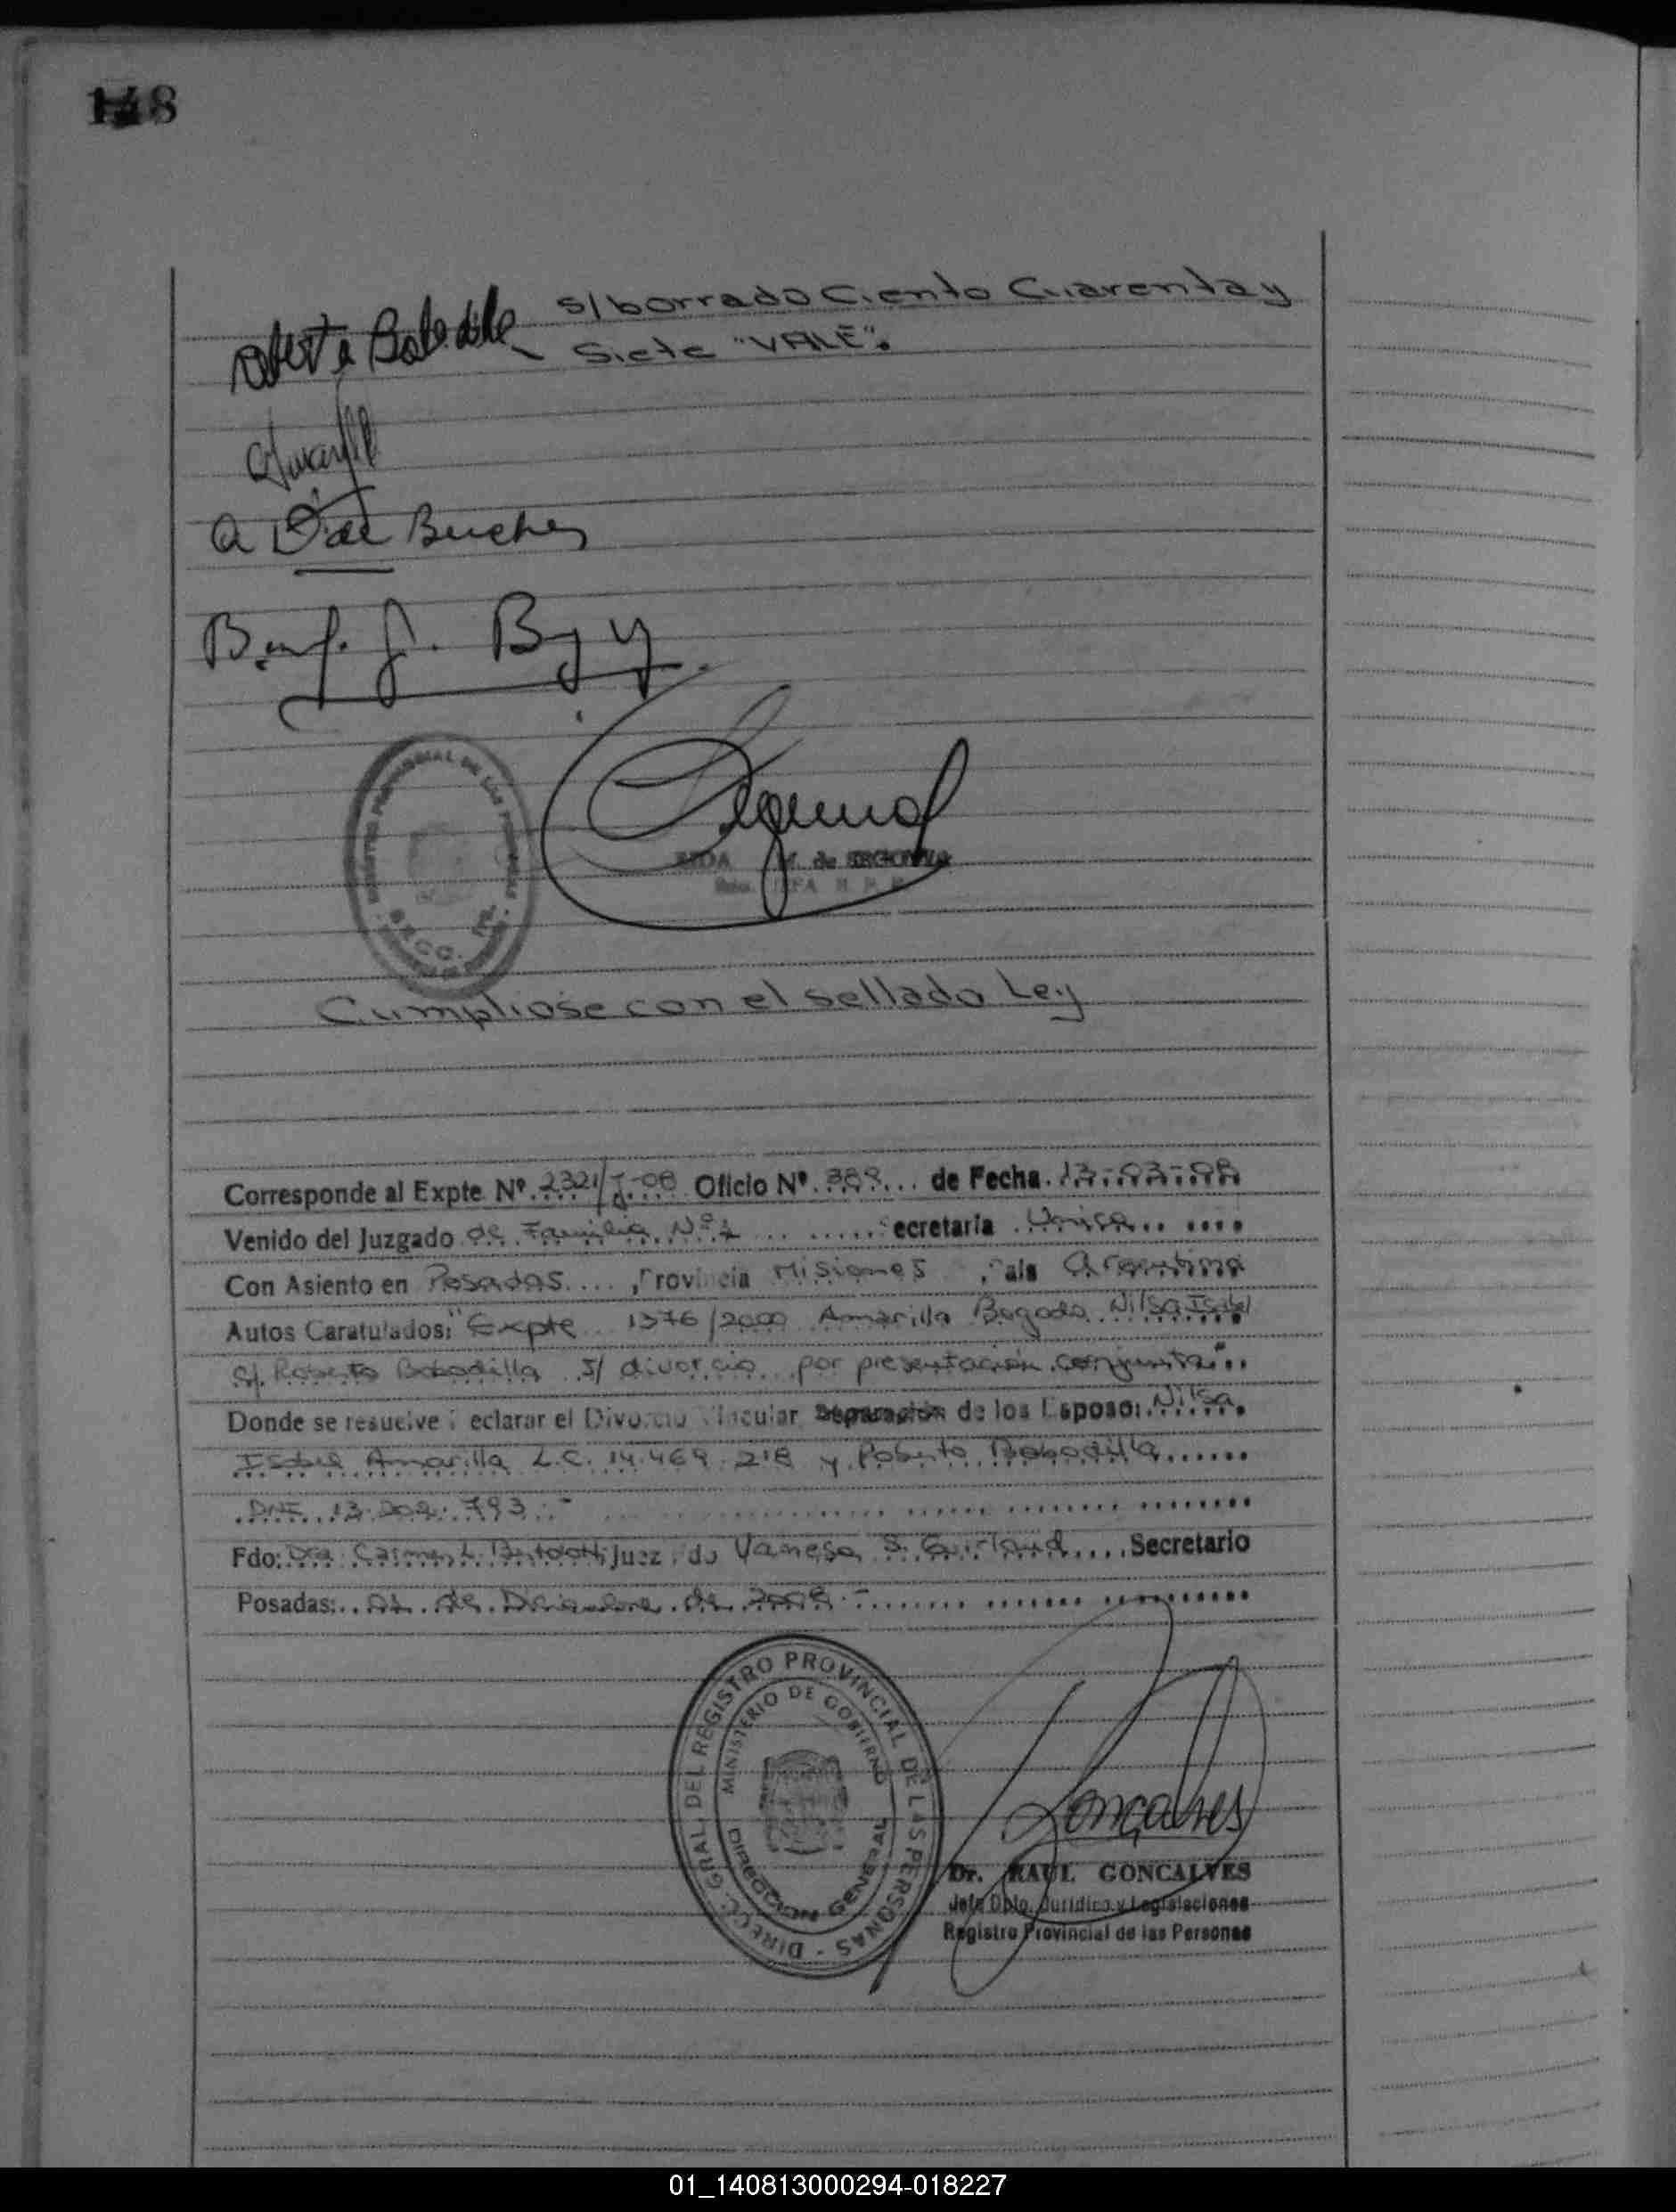 148
s/borrado Ciento Cuarenta y
Roberto Bobadilla Siete "VALE".
REGISTRO PROVINCIAL DE LAS PERSONAS
M. de SEGOVIA
Cumplióse con el sellado Ley
Corresponde al Expte Nº 2321/J-08 Oficio Nº 389 de Fecha 13-03-08
Venido del Juzgado de Familia Nº 1 ecretaria Unica
Con Asiento en Posadas, rovincia Misiones, ais Argentina
Autos Caratulados: "Expte 1376/2000 Amarilla Bogado Nilsa Isabel
c/. Roberto Bobadilla s/ divorcio por presentación conjunta"
Donde se resuelve eclarar el Divorcio Vincular Separación de los Esposo: Nilsa
Isabel Amarilla L.C. 14.469.218 y Roberto Bobadilla
DNI 13.202.793.-
Fdo: Dra Carmen L. Juez, do Vanesa S. Secretario
Posadas: de de 2008.-
DIREC. GRAL. DEL REGISTRO PROVINCIAL DE LAS PERSONAS -
MINISTERIO DE GOBIERNO
DIRECCION GENERAL
Goncalves
Dr. RAUL GONCALVES
Jefe Dpto. Jurídico y Legislaciones
Registro Provincial de las Personas
01_140813000294-018227